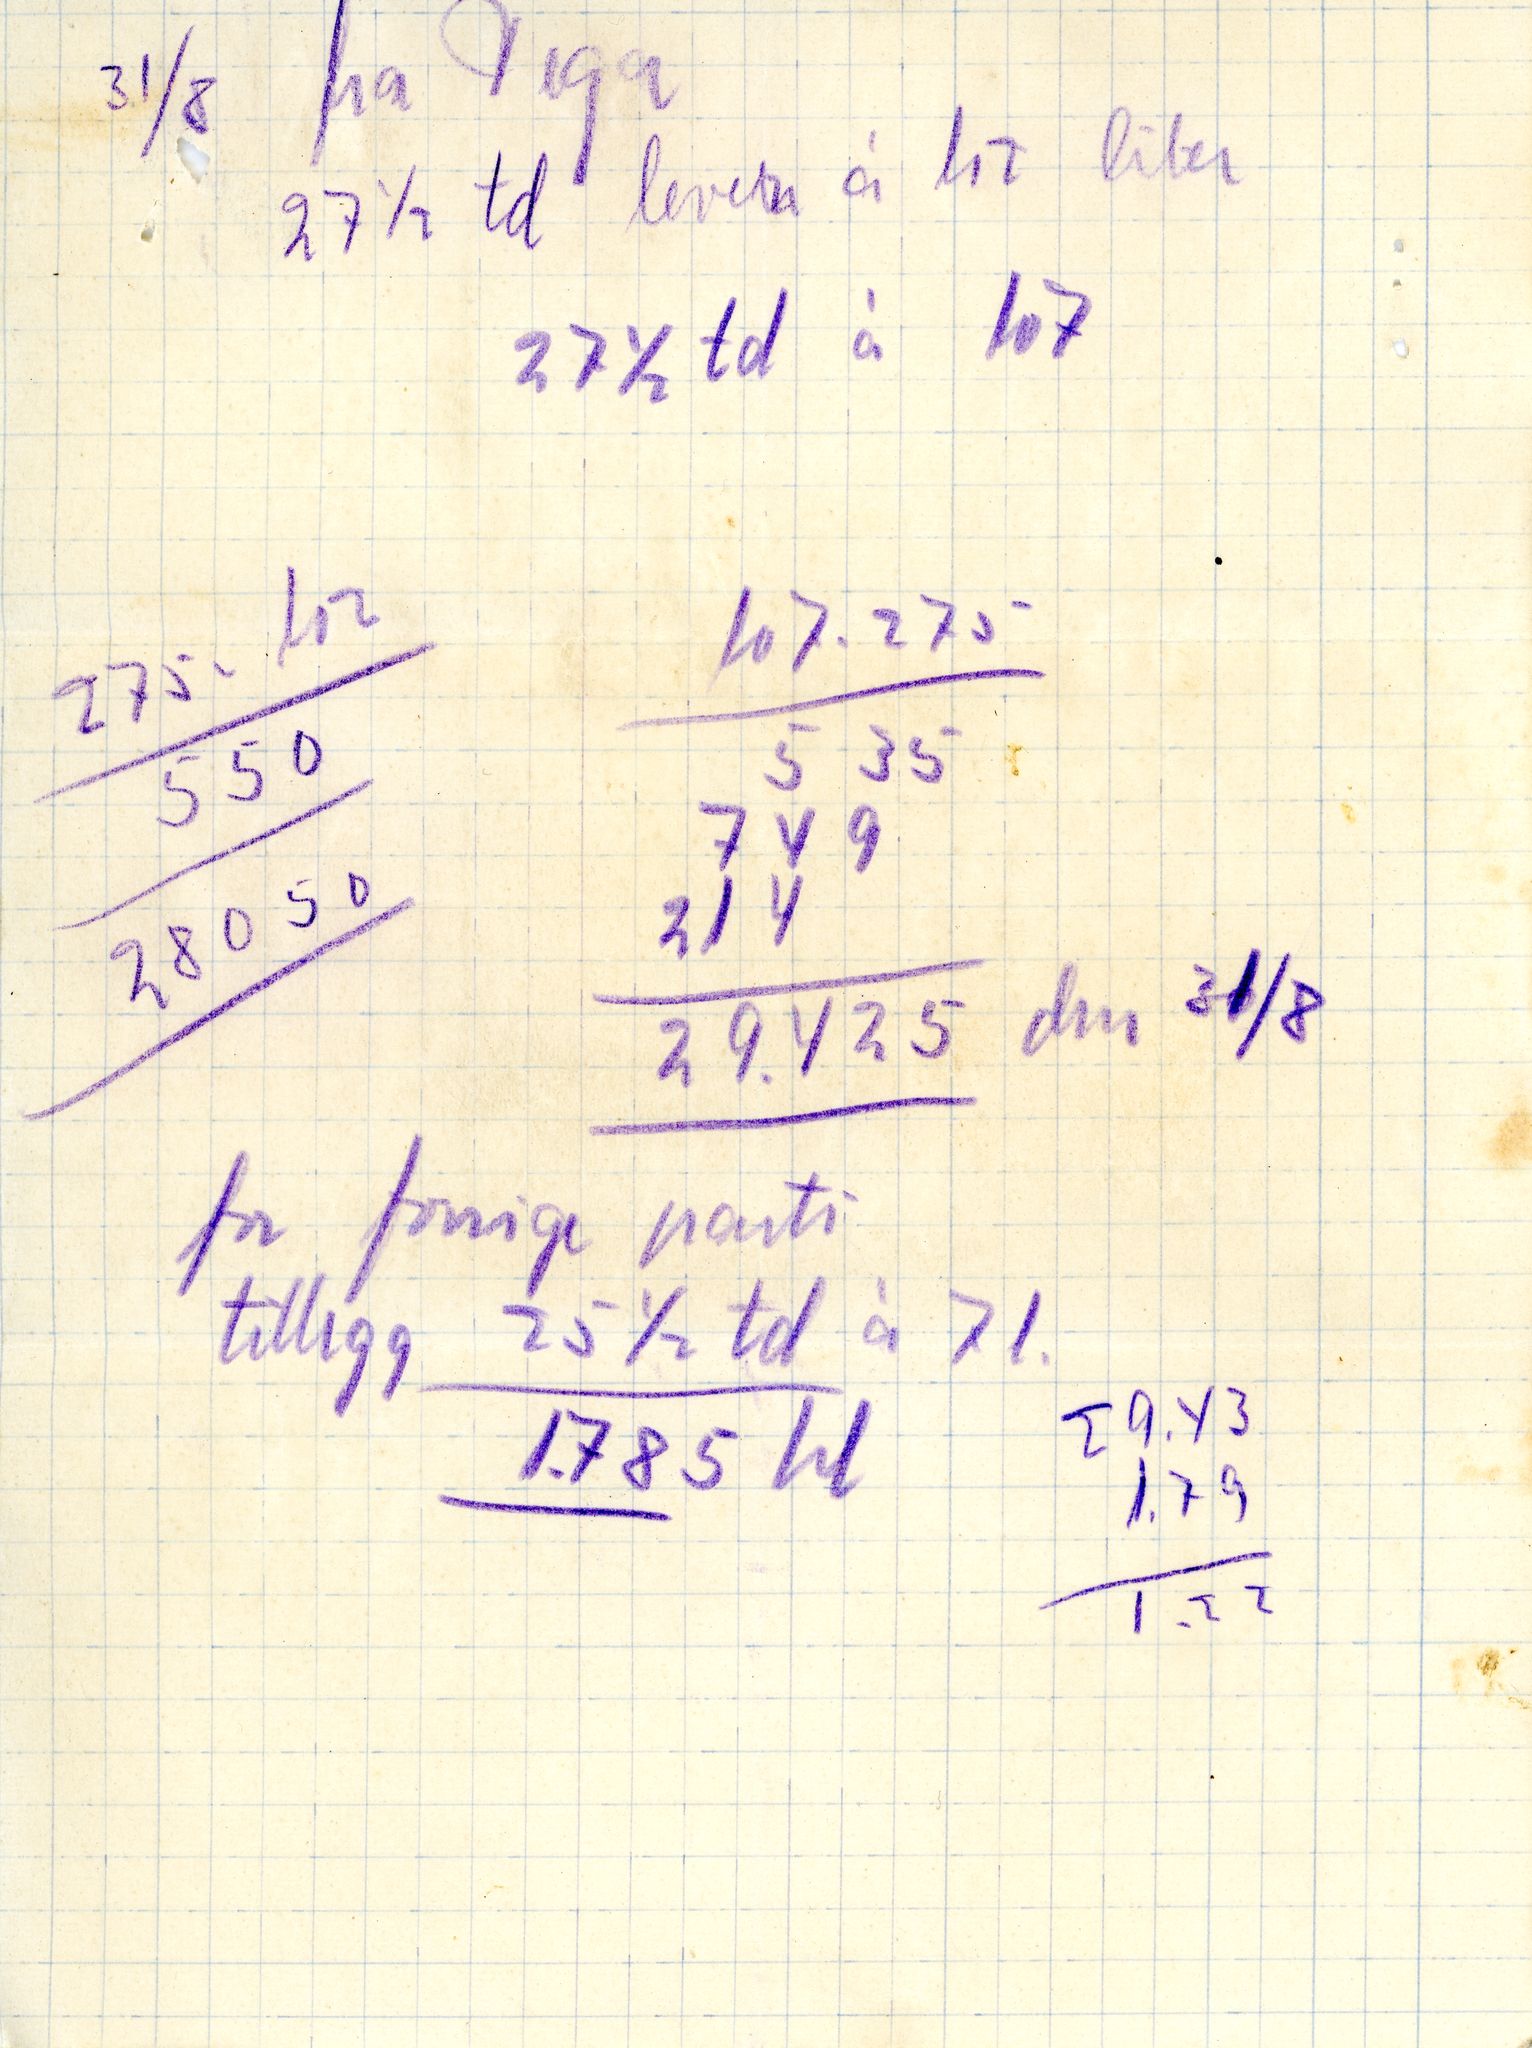 31/8 fra Vega
27 1/2 td levera á 102 liter
27 1/2 td á 107
275. 102
550
28050
107.275
5 35
7 4 9
21 4
29.425 den 31/8
for forrige parti
tillegg 25 1/2 td á 7 l.
1.785 hl
29.43
1.79
1.22